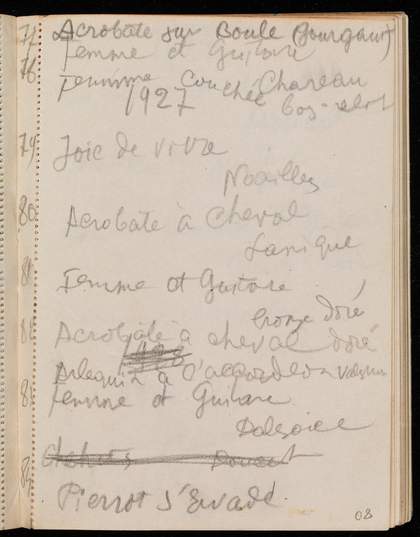 77 Acrobate sur Boule (Gourgaud)
Femme et Guitare
78 Femme Couchée Chareau
1927 bas-relief
79 Joie de vivre
Noailles
80 Acrobate à cheval
Femme et Guitare
bronze doré
Acrobate à cheval doré
Arlequin à l'accordéon
Femme et Guitare
Doucet
Pierrot s'Evade.
08